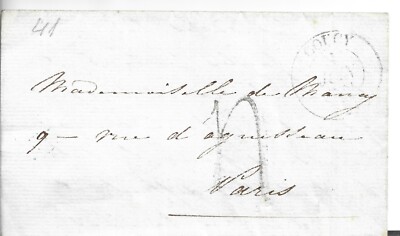 41
COUCY
Mademoiselle de Nancy
9 — rue d'aguesseau
Paris